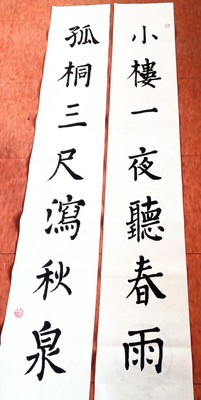 小樓一夜聽春雨
孤桐三尺瀉秋泉